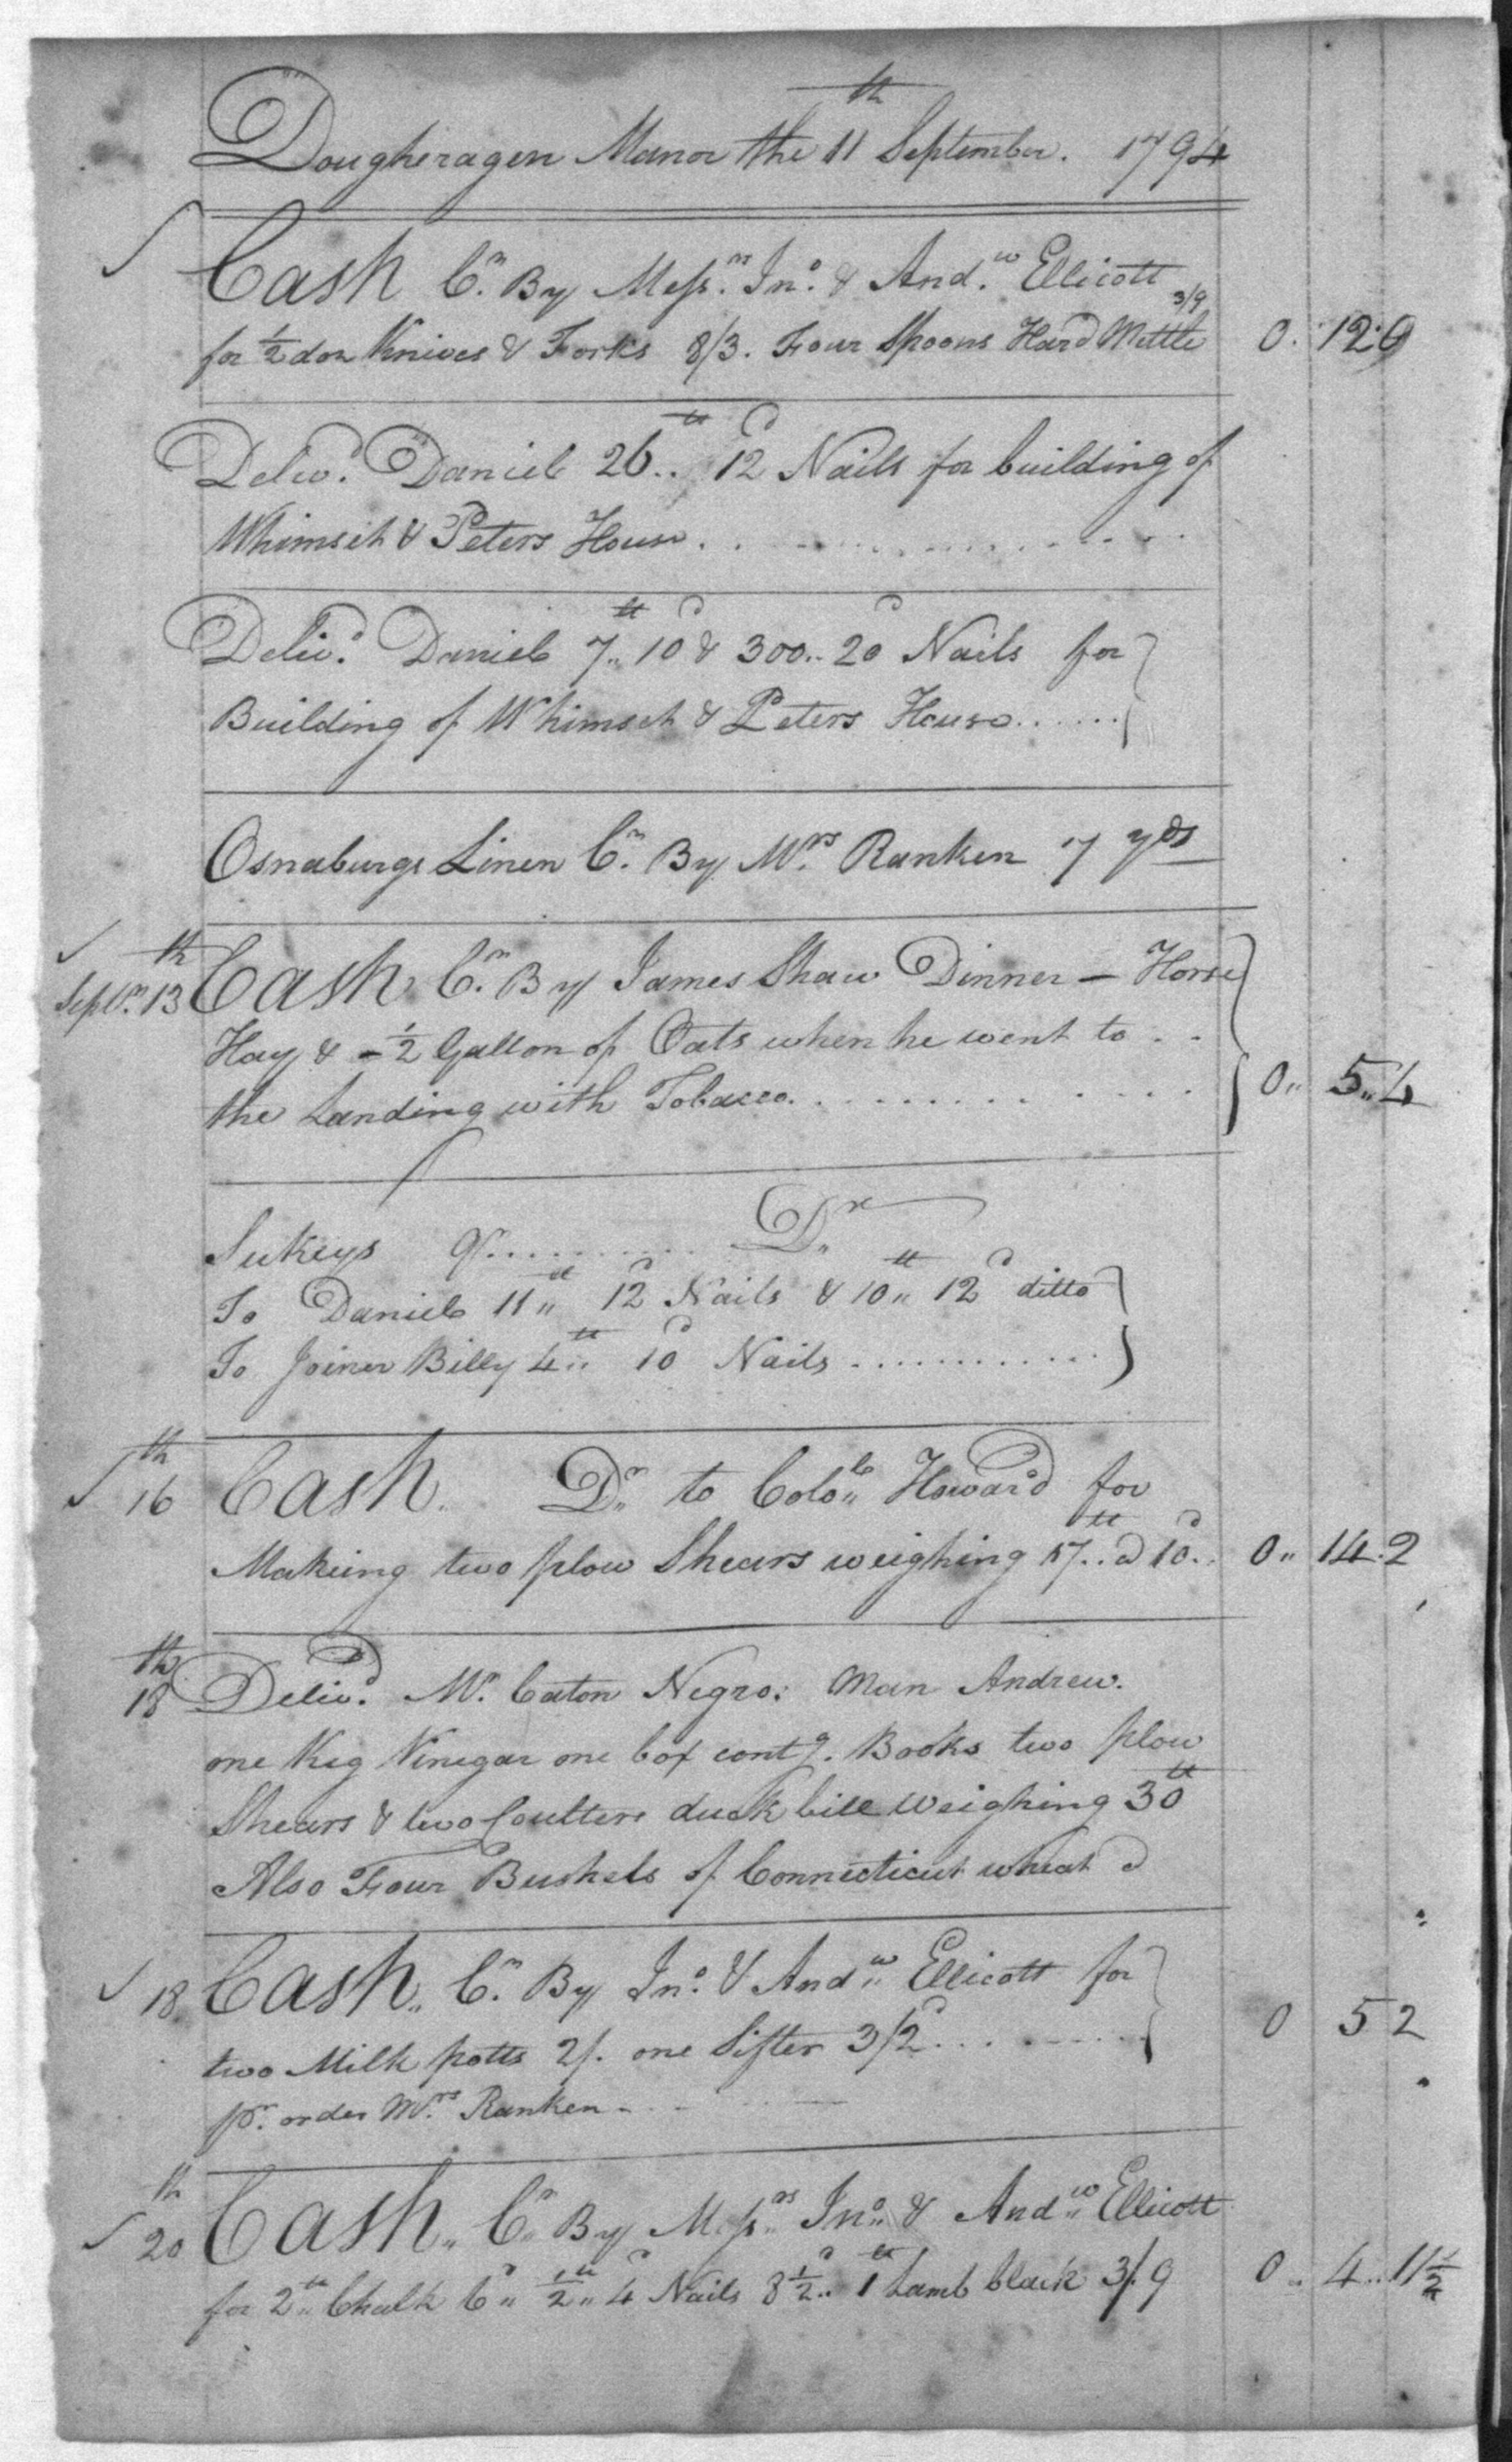 Dougheragen Manor the 11th September. 1794
Cash Cr. By Messrs. Jno. & Andw. Ellicott
for ½ doz Knives & Forks 8/3. Four Spoons Hard Mettle 3/9 0. 12. 0
Delivd. Daniel 26lb.. 12d Nails for building of
Whimsit & Peters House. . . . . . . . . . . . .
Delivd. Daniel 7lb.. 10d & 300.. 20d Nails for
Building of Whimset & Peters House......
Osnaburgs Linen Cr. By Mrs. Ranken 7 yds
Septr. 13th Cash Cr. By James Shaw Dinner – Horse
Hay & – ½ Gallon of Oats when he went to . .
the Landing with Tobacco. . . . . . . . . . . 0.. 5.. 4
Sukeys Qr........... Dr..
To Daniel 11lb.. 12d Nails & 10lb.. 12d ditto
To Joiner Billy 4lb.. 10d Nails ............
16th Cash. Dr.. to Colol.. Howard for
Makeing two plow Shears weighing 17lb.. @ 10d.. 0.. 14. 2
18th Delivd. Mr. Caton Negro: Man Andrew.
one Keg Vinegar one box contg. Books two plow
Shears & two Coulters duck bill Weighing 30lb
Also Four Bushels of Connecticut wheat
18 Cash.. Cr. By Jno. & Andw.. Ellicott for
two Milk potts 2/. one Sifter 3/2d. . . . . . . 0 5 2
pr. order Mrs. Ranken - . - . -
20th Cash.. Cr.. By Messrs.. Jno.. & Andw.. Ellicott
for 2lb.. Chalk 6d.. ½lb.. 4d Nails 8½d.. 1lb Lamb black 3/.9 0.. 4.. 11½